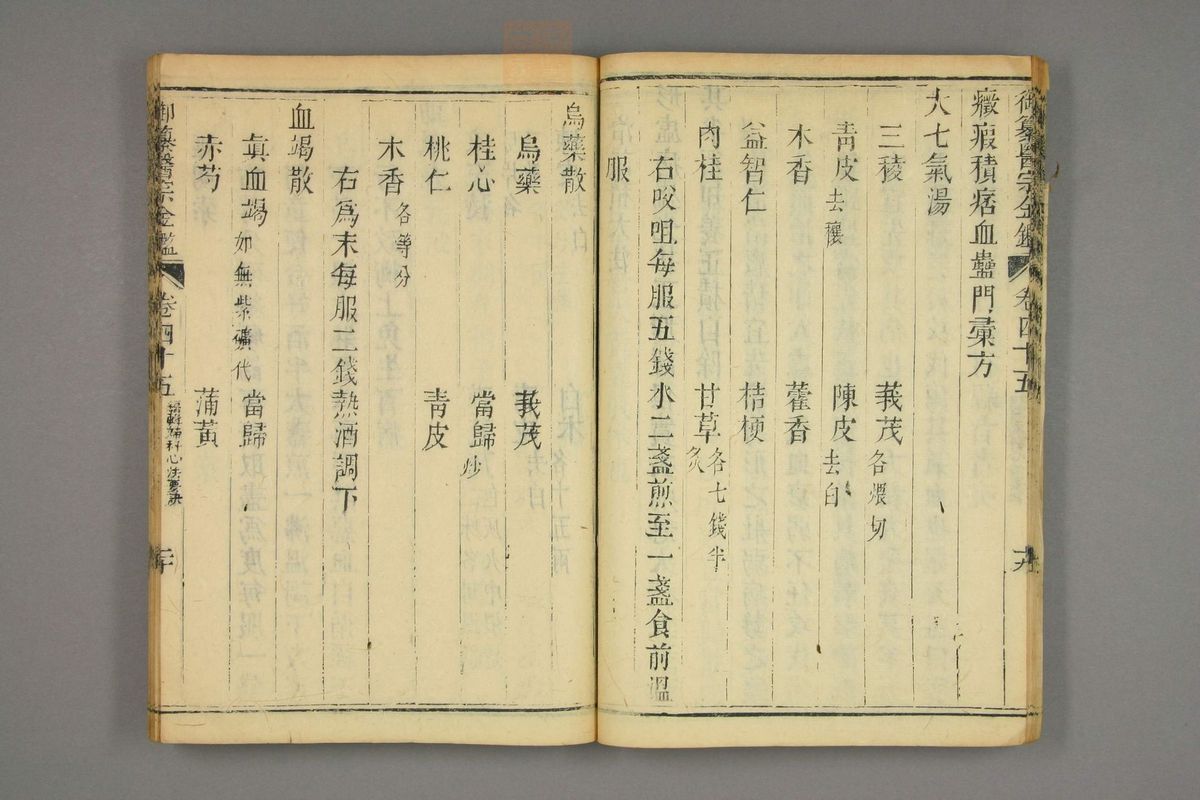 御纂醫宗金鑑 卷四十五 十九
癥瘕積痞血蠱門彙方
大七氣湯
三稜 莪茂各煨切
青皮去穰 陳皮去白
木香 藿香
益智仁 桔梗
肉桂 甘草炙各七錢半
右㕮咀每服五錢水二盞煎至一盞食前溫
服
烏藥散
烏藥 莪茂
桂心 當歸炒
桃仁 青皮
木香各等分
右為末每服二錢熱酒調下
血竭散
眞血竭如無紫礦代 當歸
赤芍 蒲黃
御纂醫宗金鑑 卷四十五 編輯婦科心法要訣 二十